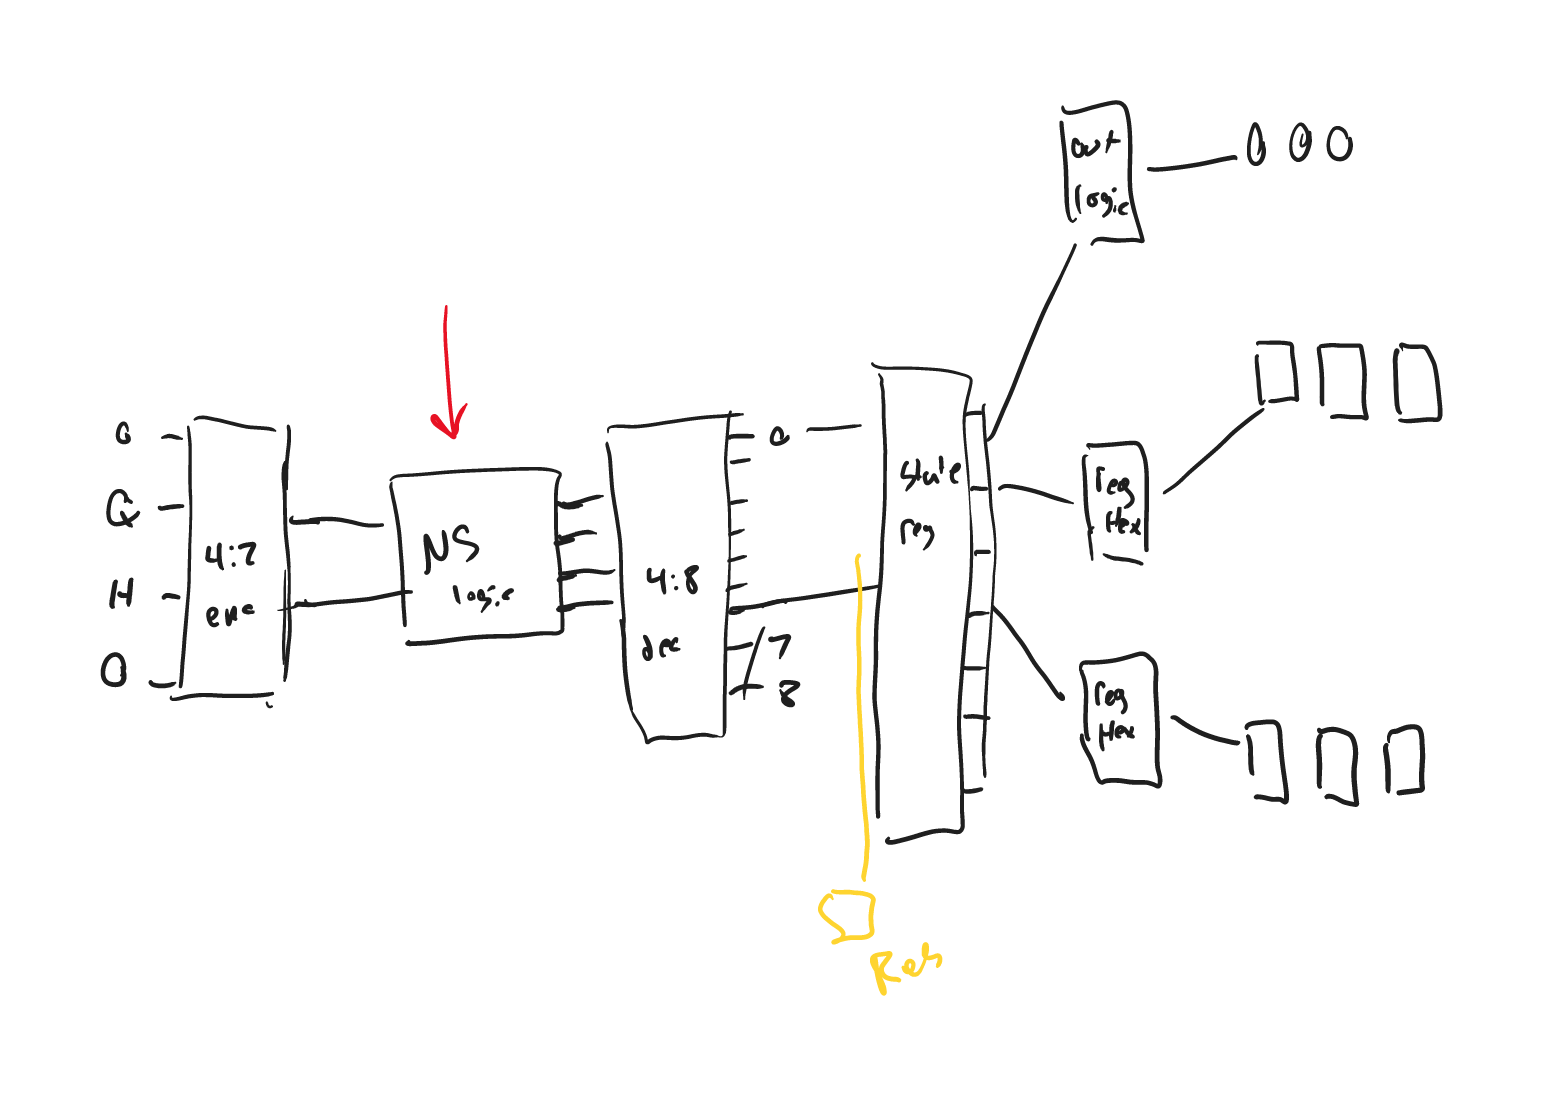 0
Q
H
O
4:2
enc
NS
logic
4:8
dec
0
7
8
state
reg
out
logic
0 0 0
reg
Hex
reg
Hex
Res